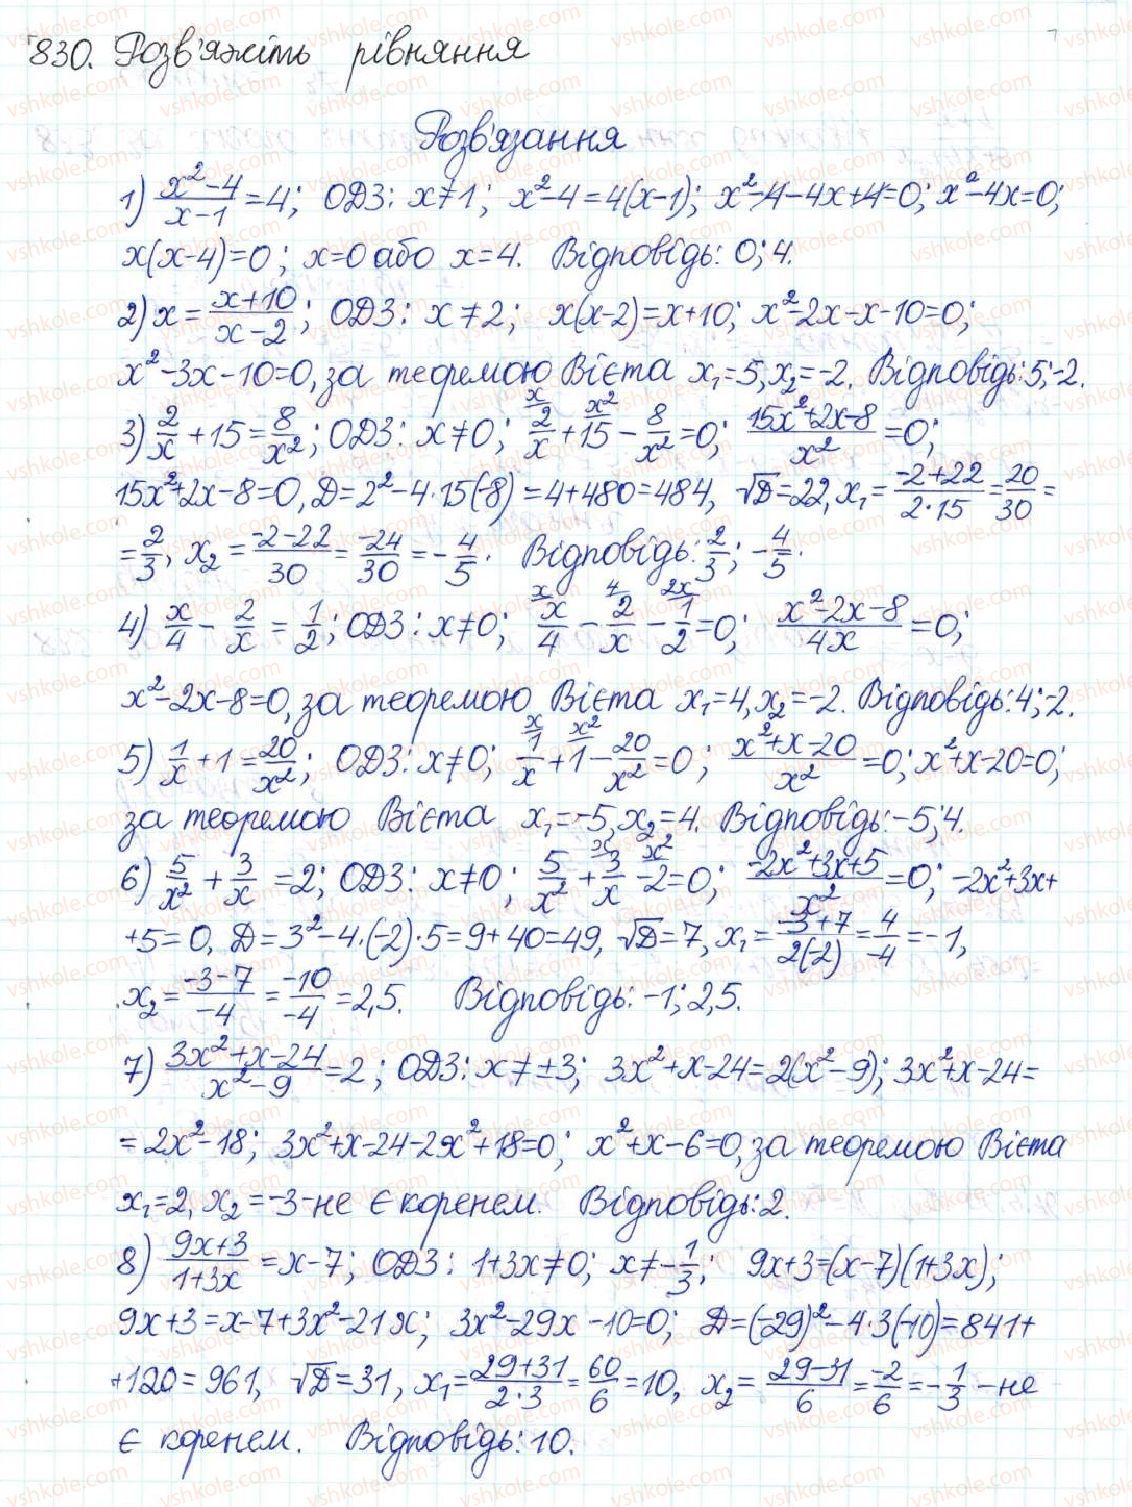 830. Розв'яжіть рівняння
Розв'язання
1) (x²-4)/(x-1) = 4; ОДЗ: x≠1; x²-4=4(x-1); x²-4-4x+4=0; x²-4x=0;
x(x-4)=0; x=0 або x=4. Відповідь: 0; 4.
2) x = (x+10)/(x-2); ОДЗ: x≠2; x(x-2)=x+10; x²-2x-x-10=0;
x²-3x-10=0, за теоремою Вієта x₁=5, x₂=-2. Відповідь: 5; -2.
3) 2/x + 15 = 8/x²; ОДЗ: x≠0; ˣ⁄ 2/x + ˣ²⁄ 15 - 8/x² = 0; (15x²+2x-8)/x² = 0;
15x²+2x-8=0, D=2²-4·15(-8)=4+480=484, √D=22, x₁ = (-2+22)/(2·15) = 20/30 =
= 2/3, x₂ = (-2-22)/30 = -24/30 = -4/5. Відповідь: 2/3; -4/5.
4) x/4 - 2/x = 1/2; ОДЗ: x≠0; ˣ⁄ x/4 - ⁴⁄ 2/x - ²ˣ⁄ 1/2 = 0; (x²-2x-8)/4x = 0;
x²-2x-8=0, за теоремою Вієта x₁=4, x₂=-2. Відповідь: 4; -2.
5) 1/x + 1 = 20/x²; ОДЗ: x≠0; ˣ⁄ 1/x + ˣ²⁄ 1 - 20/x² = 0; (x²+x-20)/x² = 0; x²+x-20=0;
за теоремою Вієта x₁=-5, x₂=4. Відповідь: -5; 4.
6) 5/x² + 3/x = 2; ОДЗ: x≠0; 5/x² + ˣ⁄ 3/x - ˣ²⁄ 2 = 0; (-2x²+3x+5)/x² = 0; -2x²+3x+
+5=0, D=3²-4·(-2)·5=9+40=49, √D=7, x₁ = (-3+7)/(2(-2)) = 4/-4 = -1,
x₂ = (-3-7)/-4 = -10/-4 = 2,5. Відповідь: -1; 2,5.
7) (3x²+x-24)/(x²-9) = 2; ОДЗ: x≠±3; 3x²+x-24=2(x²-9); 3x²+x-24=
=2x²-18; 3x²+x-24-2x²+18=0; x²+x-6=0, за теоремою Вієта
x₁=2, x₂=-3-не є коренем. Відповідь: 2.
8) (9x+3)/(1+3x) = x-7; ОДЗ: 1+3x≠0; x≠-1/3; 9x+3=(x-7)(1+3x);
9x+3=x-7+3x²-21x; 3x²-29x-10=0; D=(-29)²-4·3(-10)=841+
+120=961, √D=31, x₁ = (29+31)/(2·3) = 60/6 = 10, x₂ = (29-31)/6 = -2/6 = -1/3 - не
є коренем. Відповідь: 10.